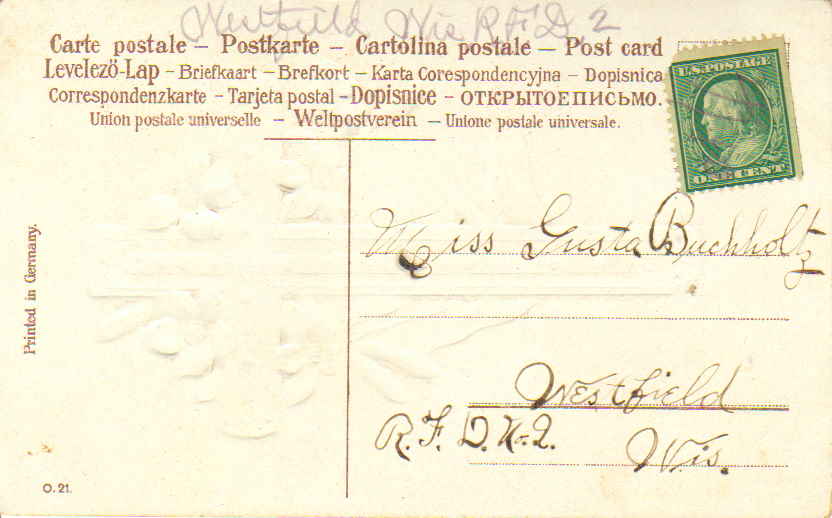 Westfield Wis R F D, 2
Carte postale – Postkarte – Cartolina postale – Post card
Levelező-Lap – Briefkaart – Brefkort – Karta Corespondencyjna – Dopisnica
Correspondenzkarte – Tarjeta postal – Dopisnice – ОТКРЫТОЕПИСЬМО.
Union postale universelle – Weltpostverein – Unione postale universale.
U.S. POSTAGE
ONE CENT
Miss Gusta Buchholtz
Westfield
R. F. D. No. 2.
Wis.
Printed in Germany.
O. 21.